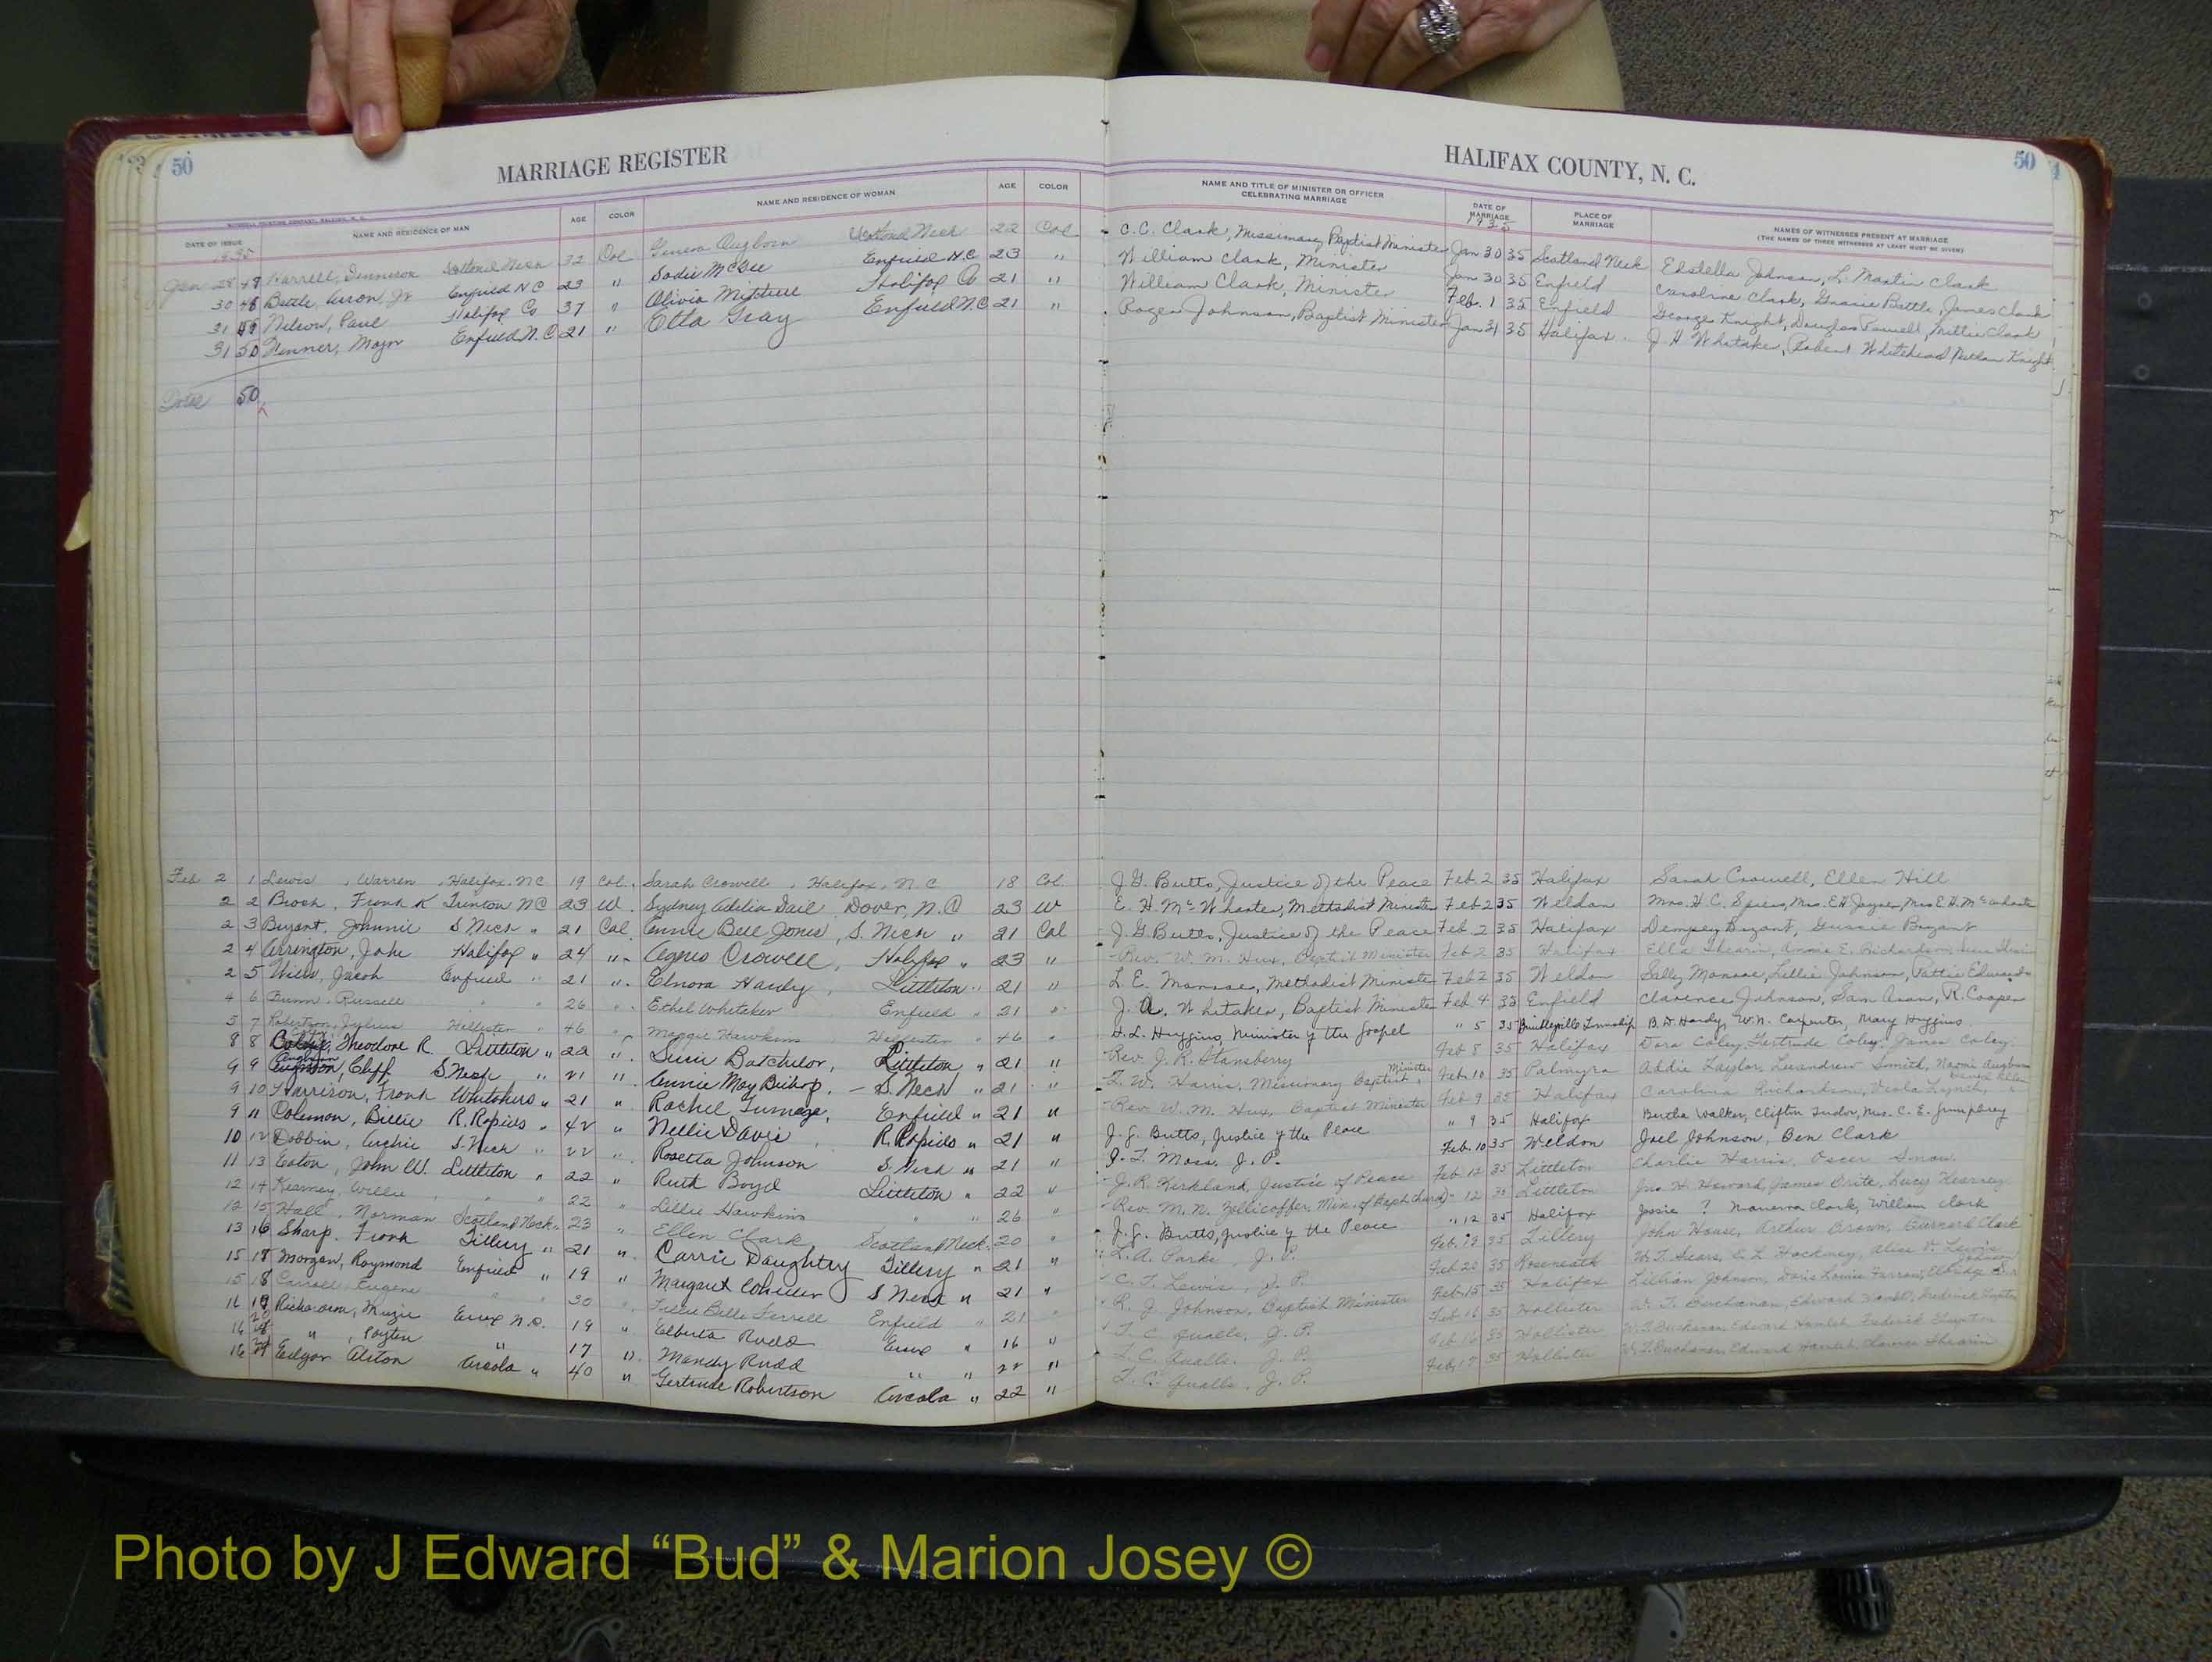 50 MARRIAGE REGISTER HALIFAX COUNTY, N. C. 50
DATE OF ISSUE NAME AND RESIDENCE OF MAN AGE COLOR NAME AND RESIDENCE OF WOMAN AGE COLOR NAME AND TITLE OF MINISTER OR OFFICER CELEBRATING MARRIAGE DATE OF MARRIAGE PLACE OF MARRIAGE NAMES OF WITNESSES PRESENT AT MARRIAGE
(THE NAMES OF THREE WITNESSES AT LEAST MUST BE GIVEN)
1935 1935
Jan 28 47 Scotland Neck 32 Col Scotland Neck 22 Col C.C. Clark, Missionary Baptist Minister Jan 30 35 Scotland Neck Edstella Johnson, L. Martin Clark
30 48 Battle, Jr Enfield NC 23 " Sadie McGee Enfield N.C 23 " William Clark, Minister Jan 30 35 Enfield Caroline Clark, Gracie Battle, James Clark
31 49 Nelson, Paul Halifax Co 37 " Olivia Mitchell Halifax Co 21 " William Clark, Minister Feb. 1 35 Enfield George Knight, Douglas Powell, Millie Clark
31 50 Fenner, Major Enfield N.C 21 " Etta Gray Enfield N.C 21 " Roger Johnson, Baptist Minister Jan 31 35 Halifax J H Whitaker, Robert Whitehead Nathan Knight
Total 50
Feb 2 1 Lewis, Warren, Halifax, NC 19 Col. Sarah Crowell, Halifax, N C 18 Col. J.G. Butts, Justice of the Peace Feb. 2 35 Halifax Sarah Crowell, Ellen Hill
2 2 Brock, Frank K Trenton NC 23 W. Sydney Adelia Dail Dover, N.C 23 W E. H. McWhorter, Methodist Minister Feb 2 35 Weldon Mrs. H.C. Spiers, Mrs. E.H Joyner, Mrs E.H. McWhorter
2 3 Bryant, Johnnie S Neck " 21 Col. Annie Bell Jones, S. Neck " 21 Col J.G. Butts, Justice of the Peace Feb 2 35 Halifax Dempsey Bryant, Gussie Bryant
2 4 Arrington, Jake Halifax " 24 " Agnes Crowell, Halifax " 23 " Rev. W. M. Hux, Baptist Minister Feb 2 35 Halifax Ella Shearin, Annie E. Richardson,
2 5 Jacob Enfield " 21 " Elnora Hardy, Littleton " 21 " L. E. Methodist Minister Feb 2 35 Weldon Sally Lillie Johnson, Pattie Edwards
4 6 Bunn, Russell " " 26 " Ethel Whitaker Enfield " 21 " J. A. Whitaker, Baptist Minister Feb. 4 35 Enfield Clarence Johnson, Sam R. Cooper
5 7 Robertson, Julius Hollister " 46 " Maggie Hawkins Hollister " 46 " H.L. Huggins, Minister of the Gospel " 5 35 Township B.D. Hardy, W.N. Carpenter, Mary Huggins
8 8 Coley, Theodore R. Littleton " 22 " Susie Batchelor, Littleton " 21 " Rev. J. R. Stansberry Feb 8 35 Halifax Dora Coley, Gertrude Coley, James Coley.
9 9 Cliff S. Neck " 21 " Annie May Bishop, S. Neck " 21 " L. W. Harris, Missionary Baptist, Minister Feb. 10 35 Palmyra Addie Taylor, Luandrew Smith, Naomi
9 10 Harrison, Frank Whitakers " 21 " Rachel Turnage, Enfield " 21 " Rev W. M. Hux, Baptist Minister Feb 9 35 Halifax Carolina Richardson,
9 11 Coleman, Billie R. Rapids " 42 " Nellie Davis, R. Rapids " 21 " J.G. Butts, Justice of the Peace " 9 35 Halifax Bertha Walker, Clifton Tudor, Mrs. C. E.
10 12 Dobbin, Archie S. Neck " 22 " Rosetta Johnson S. Neck " 21 " J. T. Moss, J. P. Feb. 10 35 Weldon Joel Johnson, Ben Clark
11 13 Eaton, John W. Littleton " 22 " Ruth Boyd Littleton " 22 " J. R. Kirkland, Justice of Peace Feb. 12 35 Littleton Charlie Harris, Oscar Snow
12 14 Kearney, Willie " " 22 " Lillie Hawkins " " 26 " Rev. M. N. Zollicoffer, Min. of Bapt. Church " 12 35 Littleton Jno. H. Howard, James Brite, Lucy Kearney
12 15 Hall, Norman Scotland Neck 23 " Ellen Clark Scotland Neck 20 " J.G. Butts, Justice of the Peace " 12 35 Halifax Jessie ? Clark, William Clark
13 16 Sharp, Frank Tillery " 21 " Carrie Daughtry Tillery " 21 " L. A. Parks, J. P. Feb. 13 35 Tillery John House, Arthur Brown, Clark
15 17 Morgan, Raymond Enfield " 19 " Margaret S Neck " 21 " C. T. Lewis, J. P. Feb 20 35 Roseneath W. T. Sears, E. L. Hockney, Alice V. Lewis
15 18 Carroll, Eugene " " 30 " Belle Enfield " 21 " R. J. Johnson, Baptist Minister Feb. 15 35 Halifax Lillian Johnson, Doris Louise
16 19 Essex N.C. 19 " Elberta Rudd Essex " 16 " L. C. Qualls, J. P. Feb 16 35 Hollister W. T. Buchanan, Edward
16 20 " , " 17 " Mandy Rudd " " 22 " L. C. Qualls, J. P. Feb 16 35 Hollister W. T. Buchanan, Edward
16 21 Edgar Alston Areola " 40 " Gertrude Robertson Areola " 22 " L. C. Qualls, J. P. Feb. 17 35 Hollister W. T. Buchanan, Edward Shearin
Photo by J Edward “Bud” & Marion Josey ©